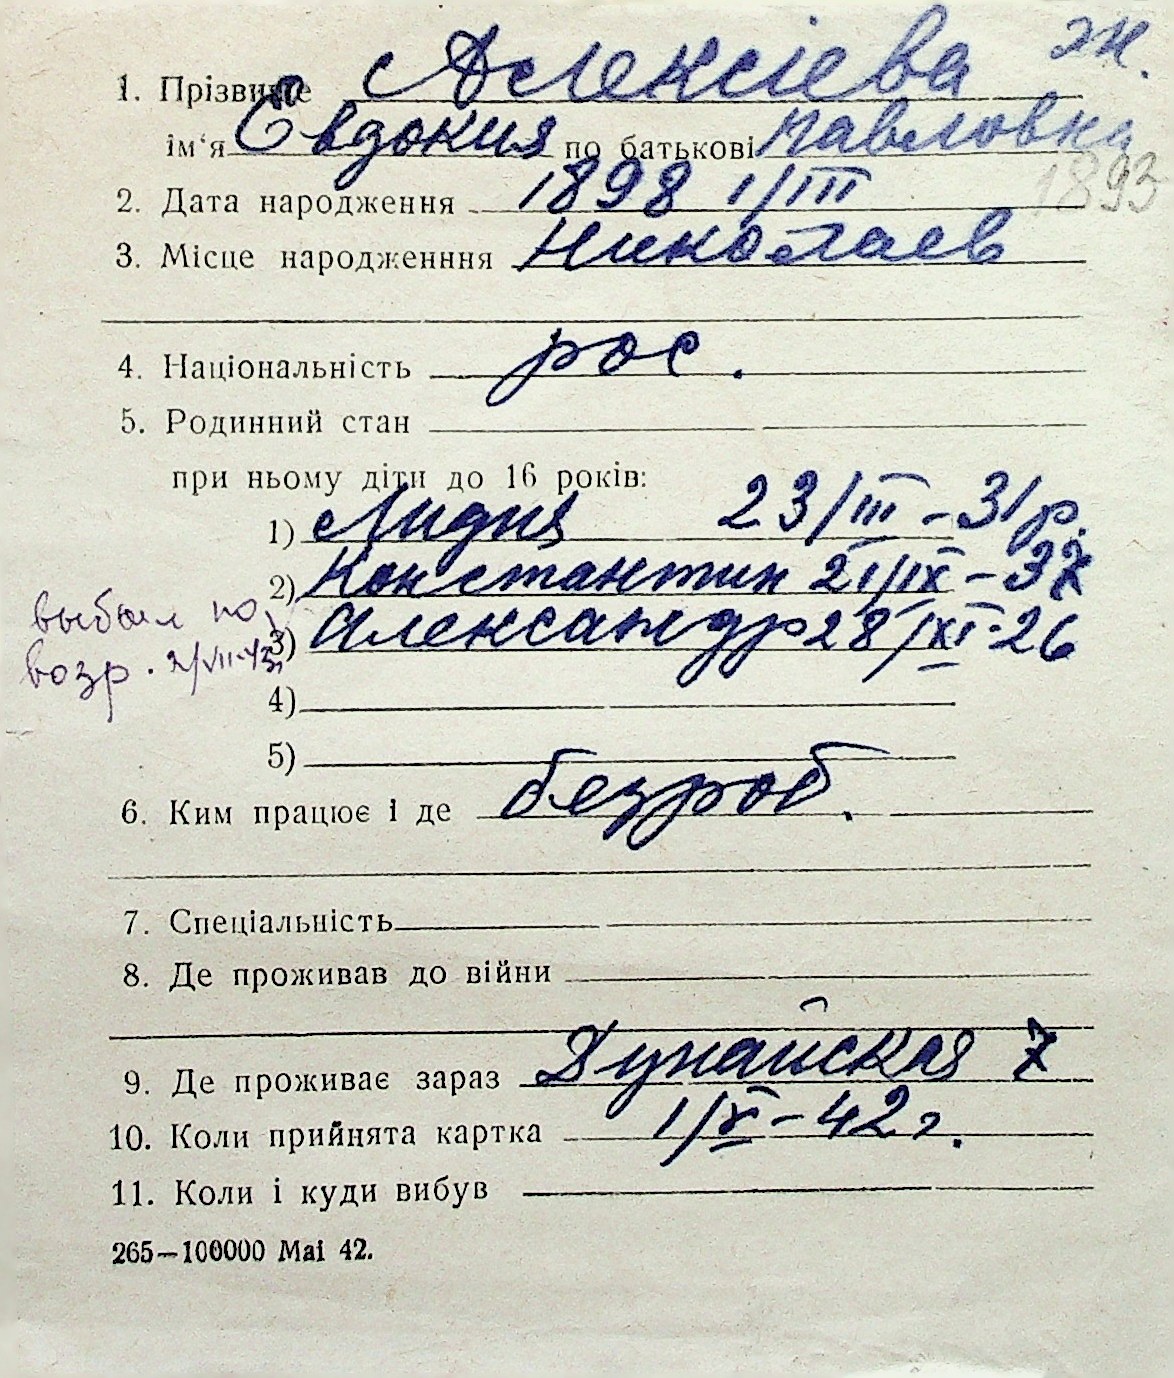 ж.
1. Прізвище Алексіева
ім'я Евдокия по батькові Павловна
1893
2. Дата народження 1898 1/III
3. Місце народженння Николаев
4. Національність рос.
5. Родинний стан
при ньому діти до 16 років:
1) Лидия 23/III - 31 р.
2) Константин 21/IX - 37
3) Александр 28/XI - 26
выбыл по
возр. 2/VII-43
4)
5)
6. Ким працює і де безроб.
7. Спеціальність
8. Де проживав до війни
9. Де проживає зараз Дунайская 7
10. Коли прийнята картка 1/X - 42 г.
11. Коли і куди вибув
265—100000 Mai 42.